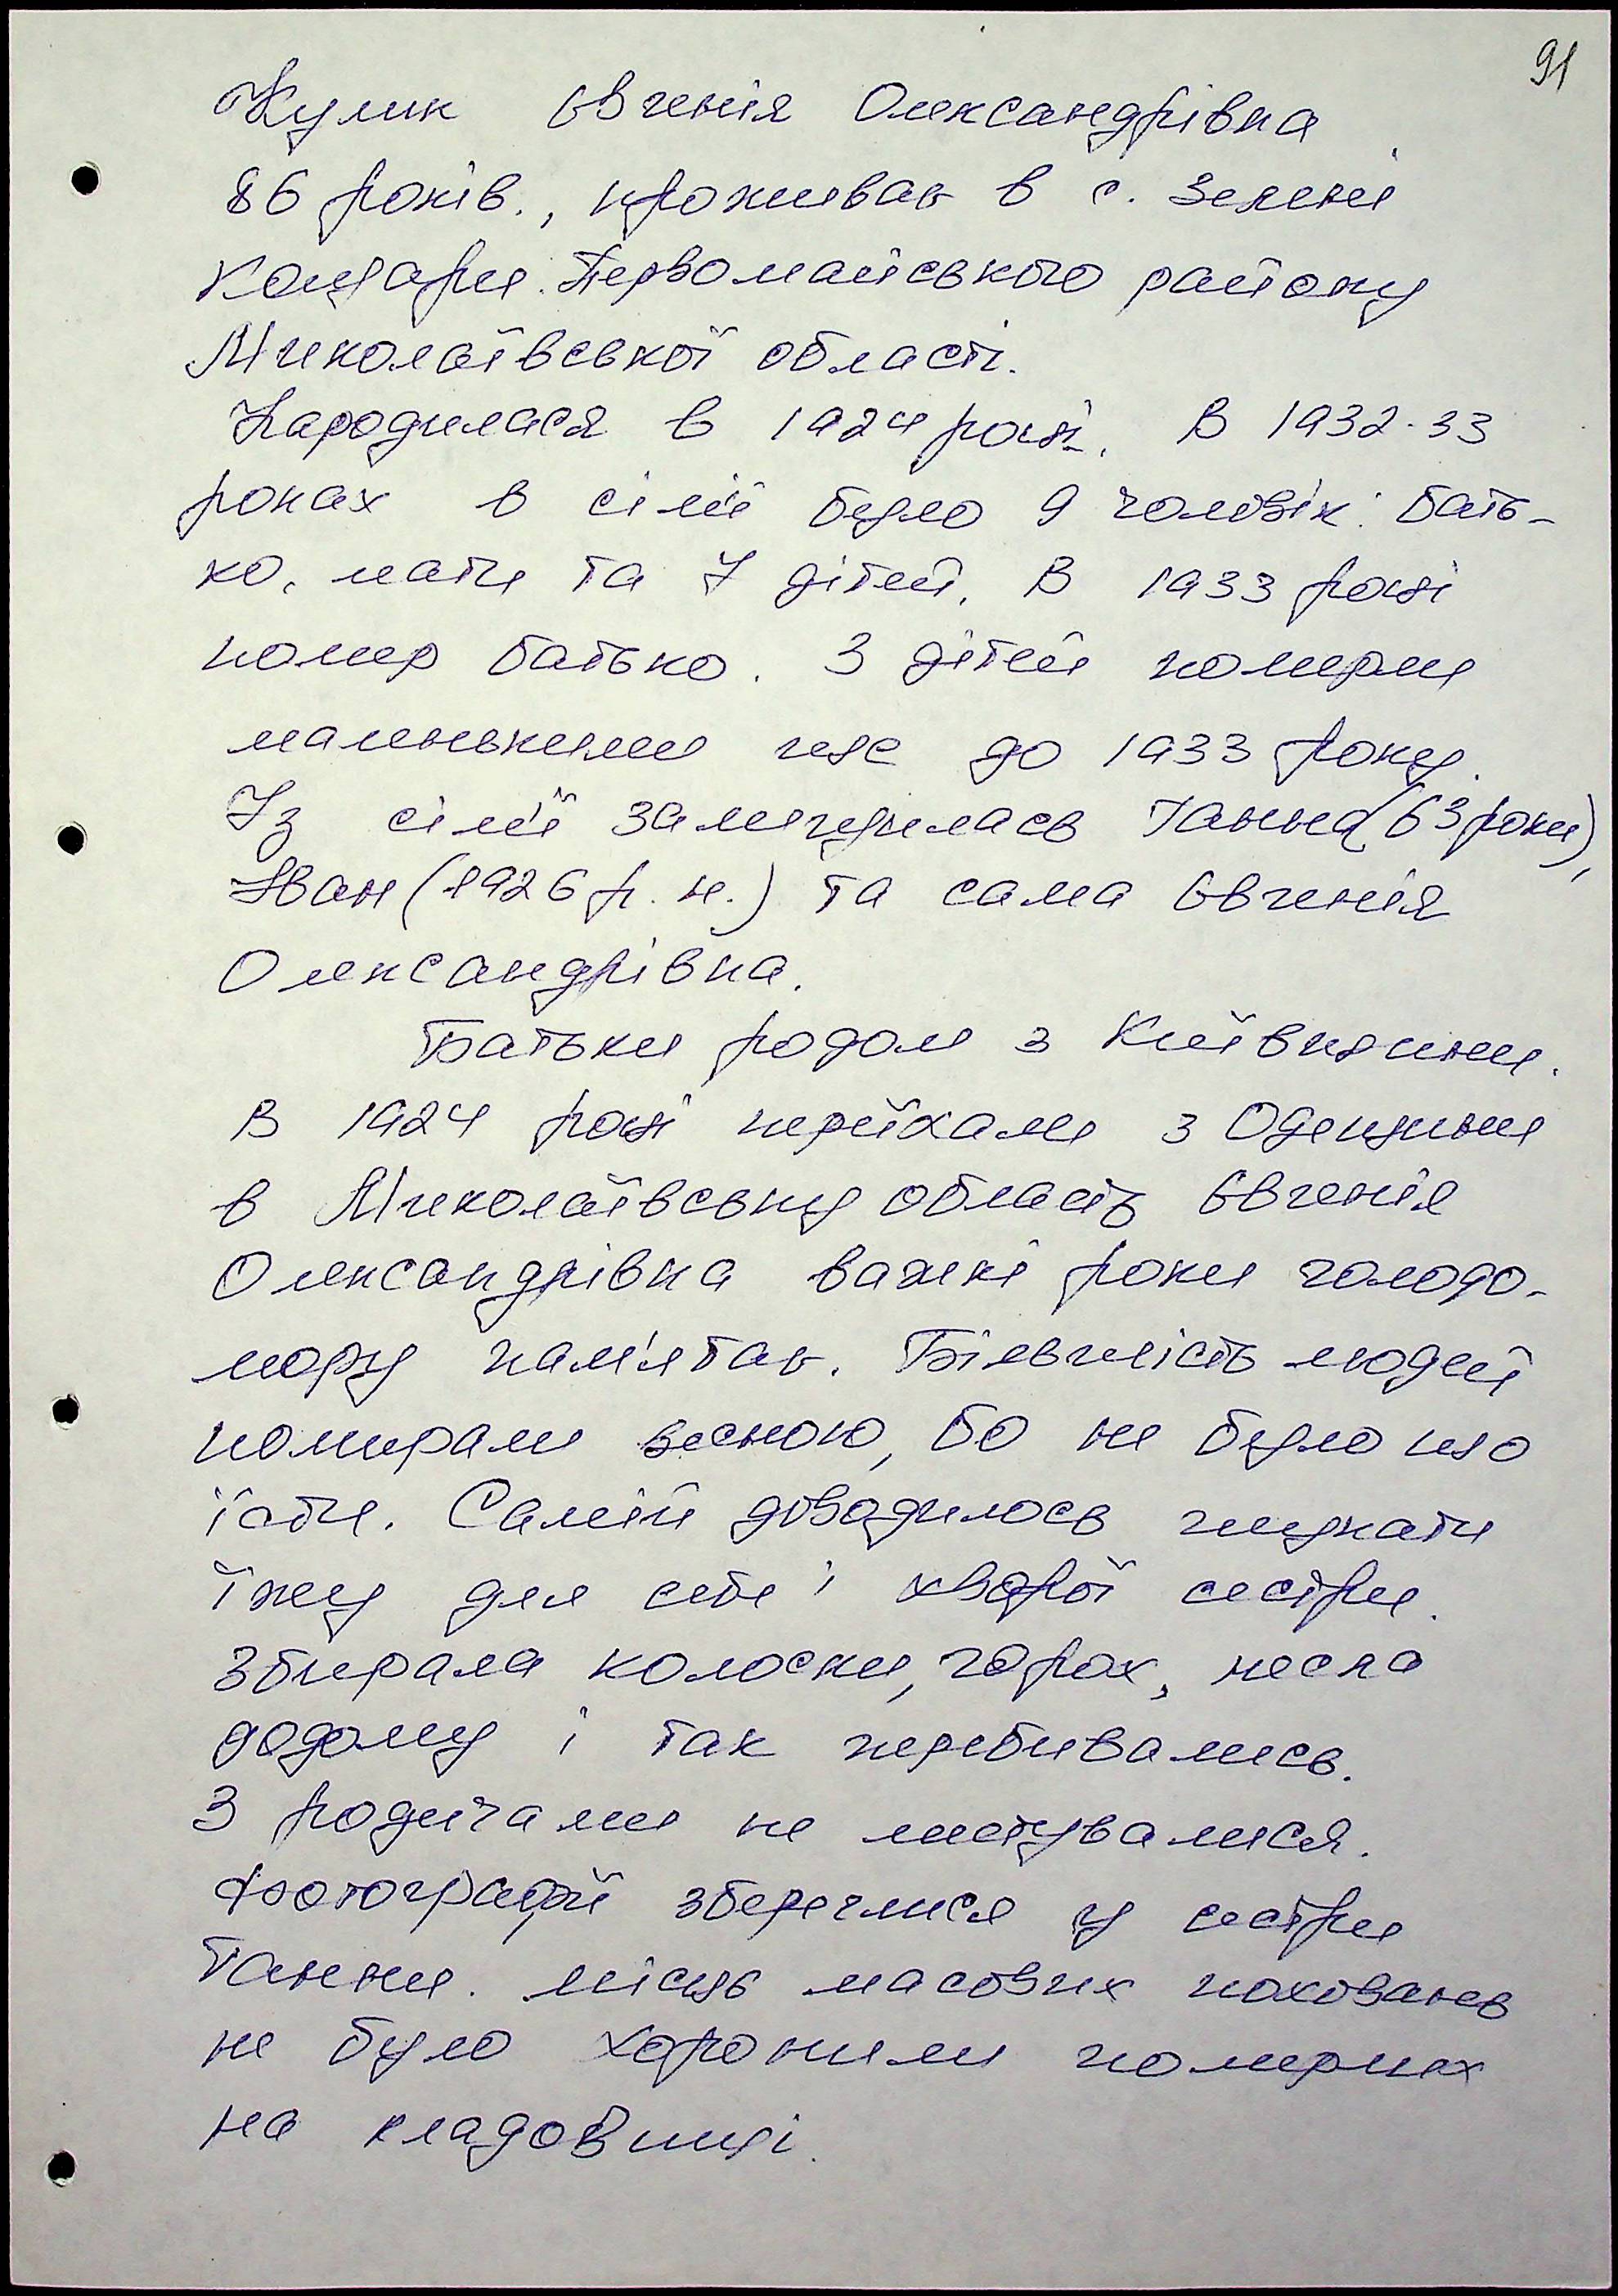 91
Кулик Євгенія Олександрівна
86 років., проживає в с. Зелені
Кошари. Первомайського району
Миколаївської області.
Народилася в 1924 році. В 1932-33
роках в сім'ї було 9 чоловік: бать-
ко, мати та 7 дітей. В 1933 році
помер батько. 3 дітей померли
маленькими ще до 1933 року.
Із сім'ї залишилась Ганна (63 роки),
Іван (1926 р. н.) та сама Євгенія
Олександрівна.
Батьки родом з Київщини.
В 1924 році переїхали з Одещини
в Миколаївську область Євгенія
Олександрівна важкі роки голодо-
мору пам'ятає. Більшість людей
помирали весною, бо не було що
їсти. Самій доводилось шукати
їжу для себе і хворої сестри.
Збирала колоски, горох, несла
додому і так перебивались.
З родичами не листувалися.
Фотографії збереглися у сестри
Ганни. Місць масових поховань
не було хоронили померлих
на кладовищі.